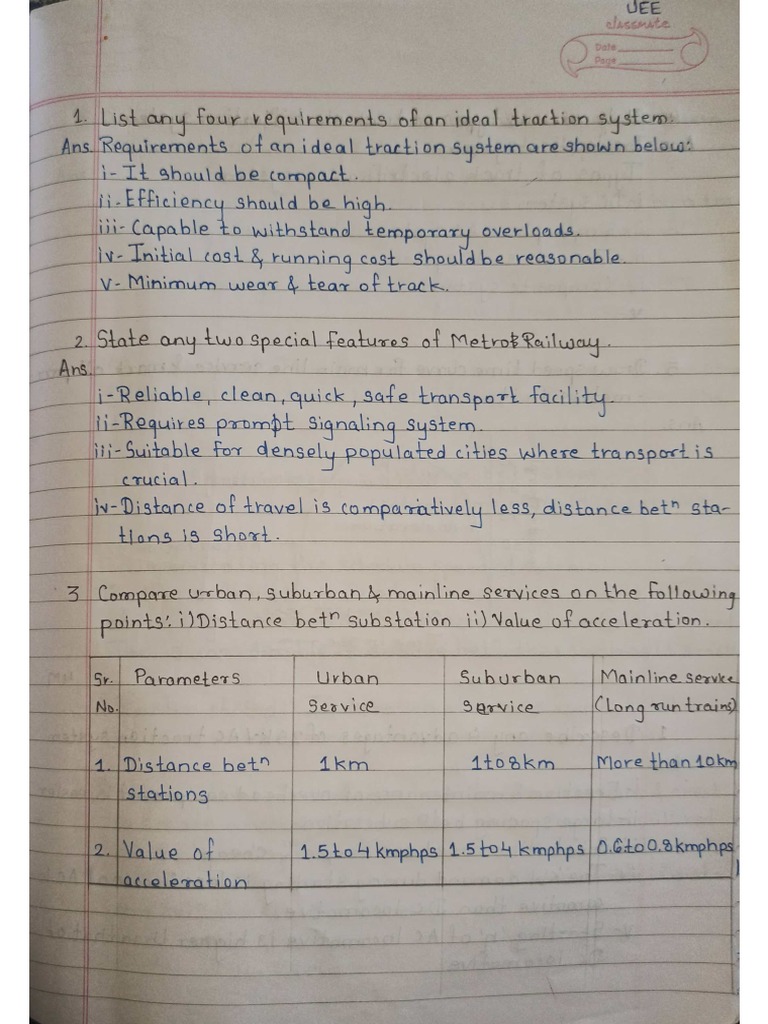 UEE
classmate
Date
Page
1. List any four requirements of an ideal traction system.
Ans. Requirements of an ideal traction system are shown below:
i- It should be compact.
ii- Efficiency should be high.
iii- Capable to withstand temporary overloads.
iv- Initial cost & running cost should be reasonable.
v- Minimum wear & tear of track.
2. State any two special features of Metro Railway.
Ans.
i- Reliable, clean, quick, safe transport facility.
ii- Requires prompt signaling system.
iii- Suitable for densely populated cities where transport is
crucial.
iv- Distance of travel is comparatively less, distance betⁿ sta-
tions is short.
3 Compare urban, suburban & mainline services on the following
points: i) Distance betⁿ substation ii) Value of acceleration.
Sr. Parameters Urban Suburban Mainline service
No. Service service (Long run trains)
1. Distance betⁿ 1km 1to8km More than 10km
stations
2. Value of 1.5 to 4 kmphps 1.5 to 4 kmphps 0.6 to 0.8 kmphps
acceleration